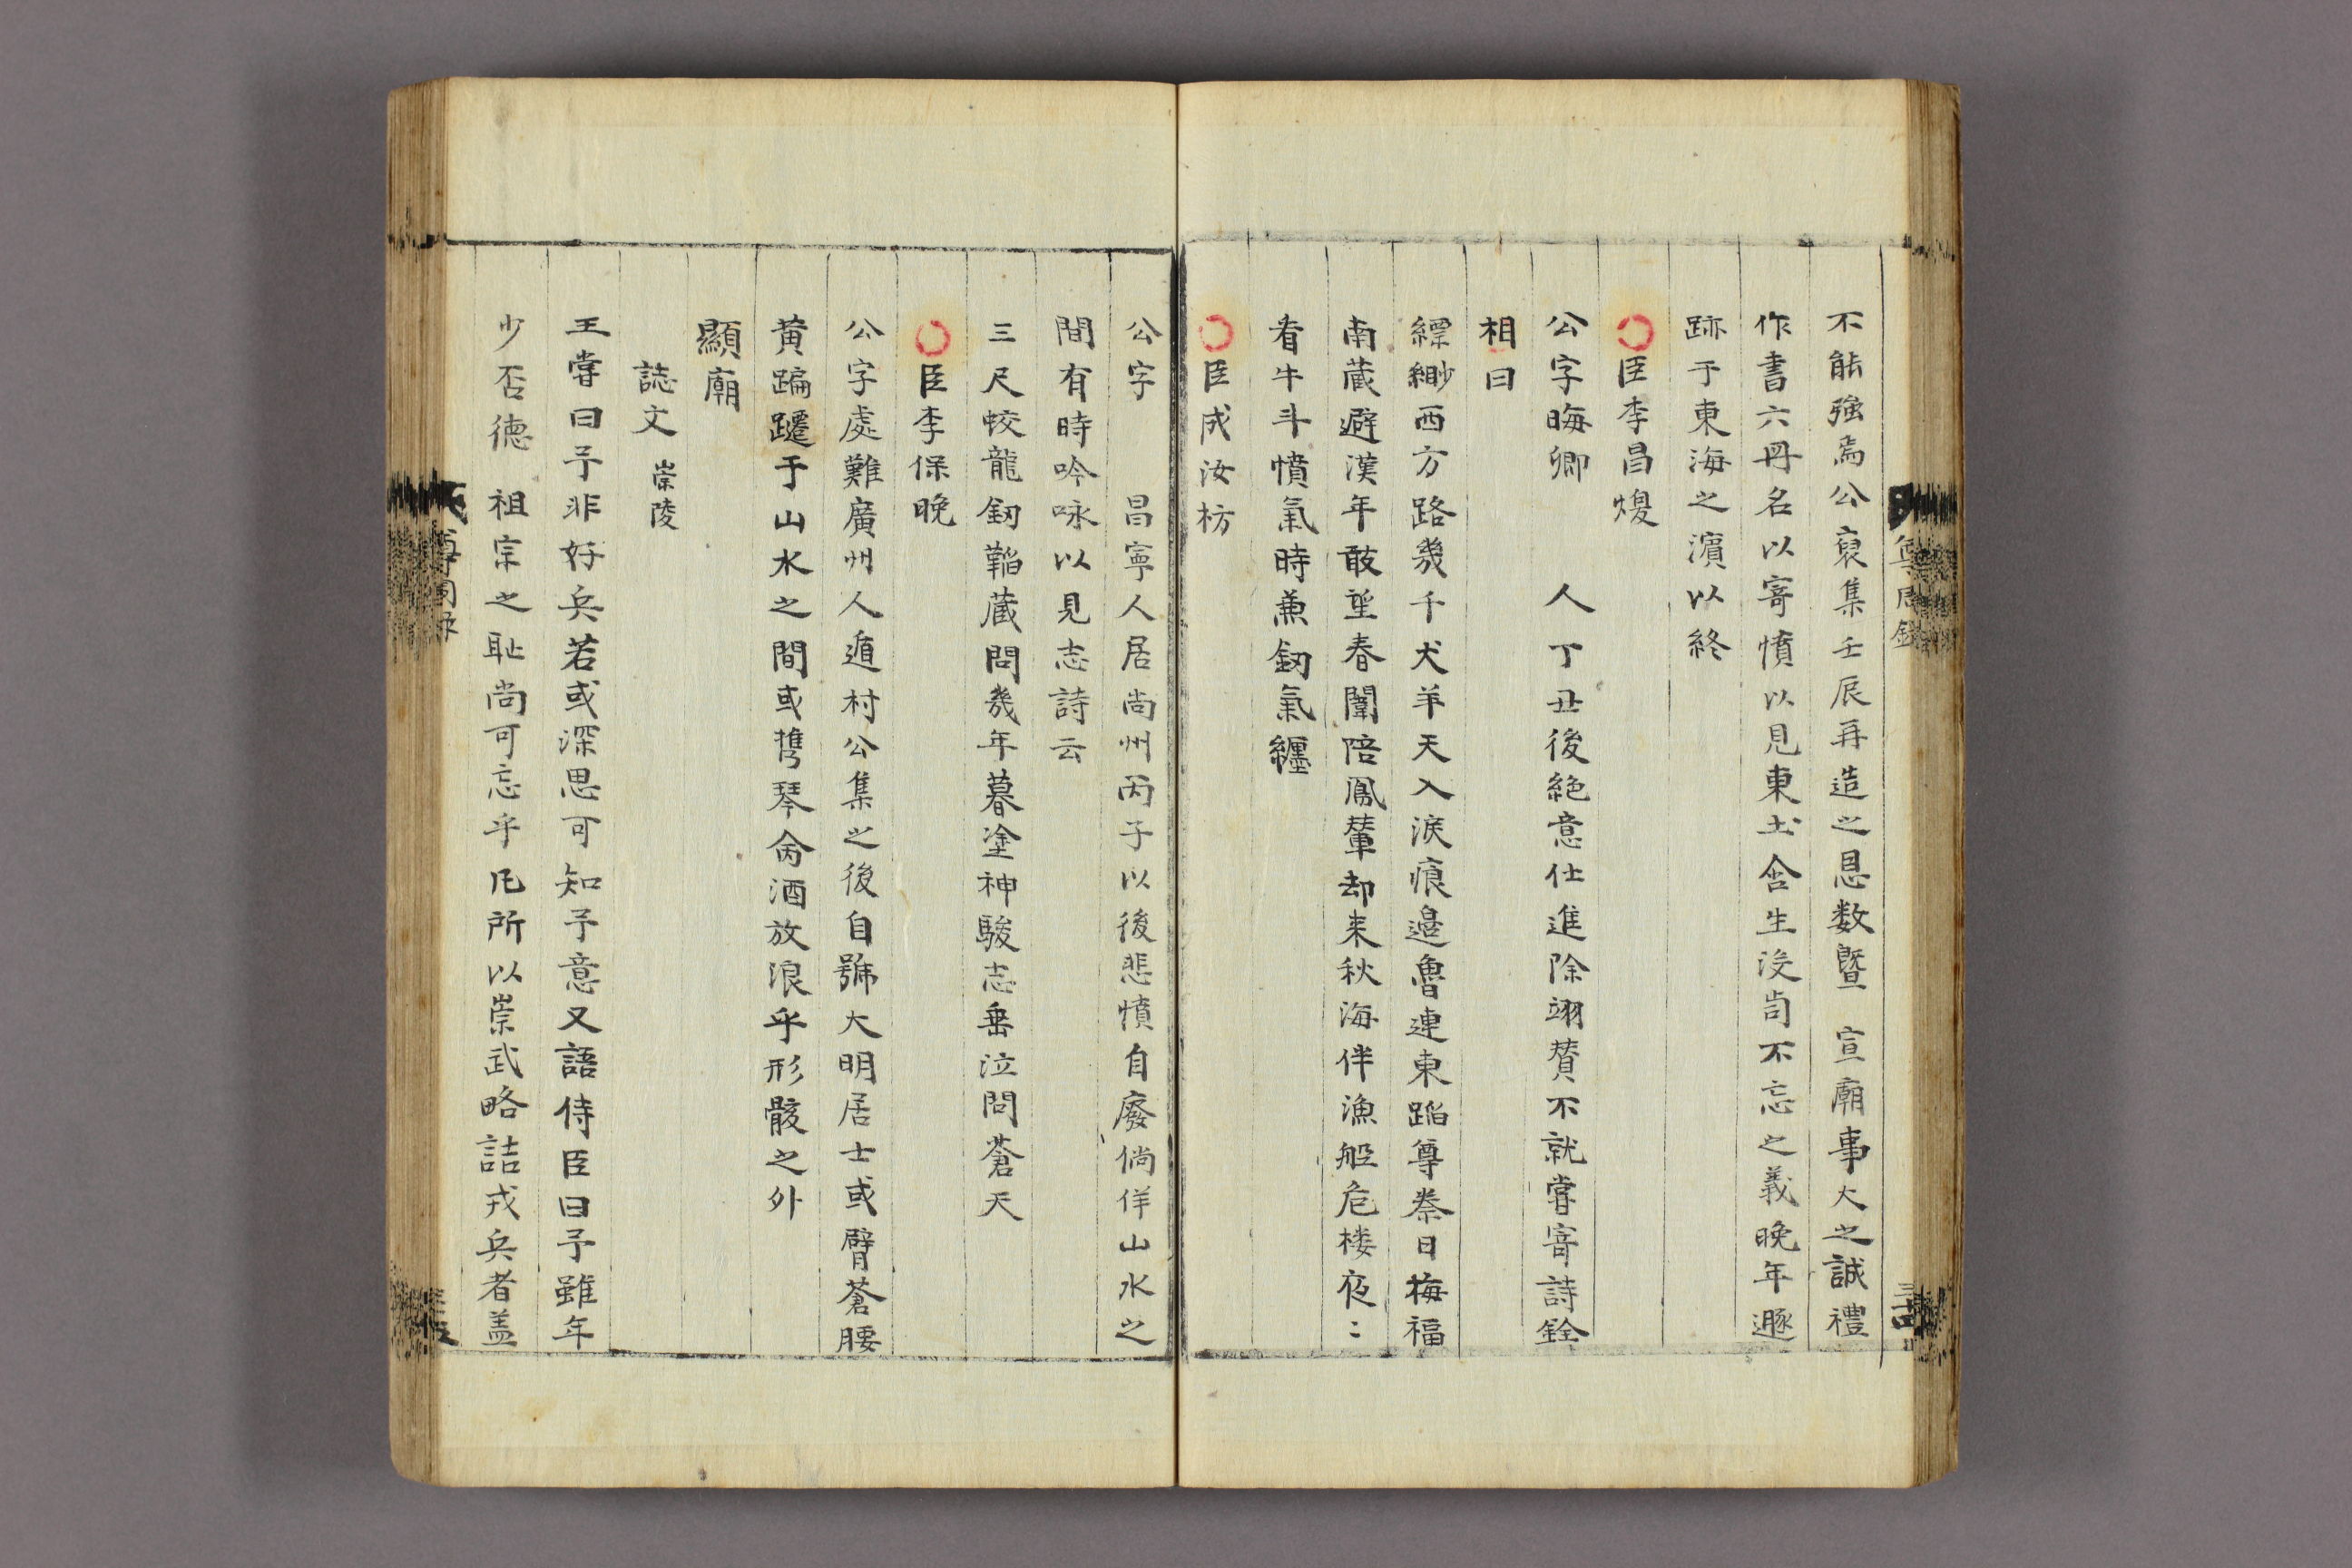 不能強焉公裒集壬辰再造之恩数曁 宣廟事大之誠禮
作書六冊名以寄憤以見東土含生沒齒不忘之義晚年遯
跡于東海之濵以終
○臣李昌煥
公字晦卿 人丁丑後絶意仕進除翊賛不就嘗寄詩銓
相曰
縹緲西方路幾千犬羊天入淚痕邉魯連東蹈尊秦日梅福
南蔵避漢年敢望春闈陪鳳輦却来秋海伴漁船危楼夜〻
看牛斗憤氣時兼釼氣纒
○臣成汝枋
公字 昌寧人居尚州丙子以後悲憤自廢倘佯山水之
間有時吟咏以見志詩云
三尺蛟龍釼鞱蔵問幾年暮塗神駿志垂泣問蒼天
○臣李保晚
公字處難廣州人遁村公集之後自號大明居士或臂蒼腰
黄蹁躚于山水之間或携琴佩酒放浪乎形骸之外
顯廟
誌文 崇陵
王嘗曰予非好兵若或深思可知予意又語侍臣曰予雖年
少否德 祖宗之耻尚可忘乎凡所以崇武略詰戎兵者盖
尊周錄
三十四